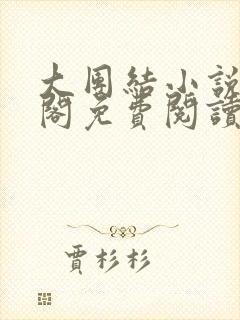 大團結小說
閣免費閱讀
賈杉杉